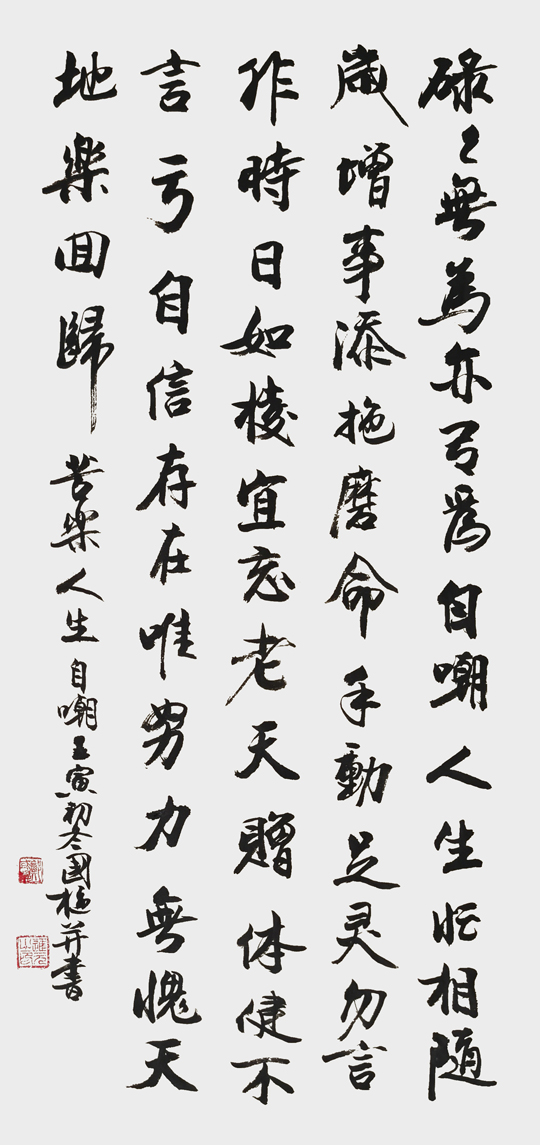 碌々無為亦為自嘲人生忙相随
歲增事添拖磨命手動足灵勿言
時日如梭宜忘老天贈体健不
言亏自信存在唯努力無愧天
地樂回歸 苦樂人生自嘲壬寅初冬國并書